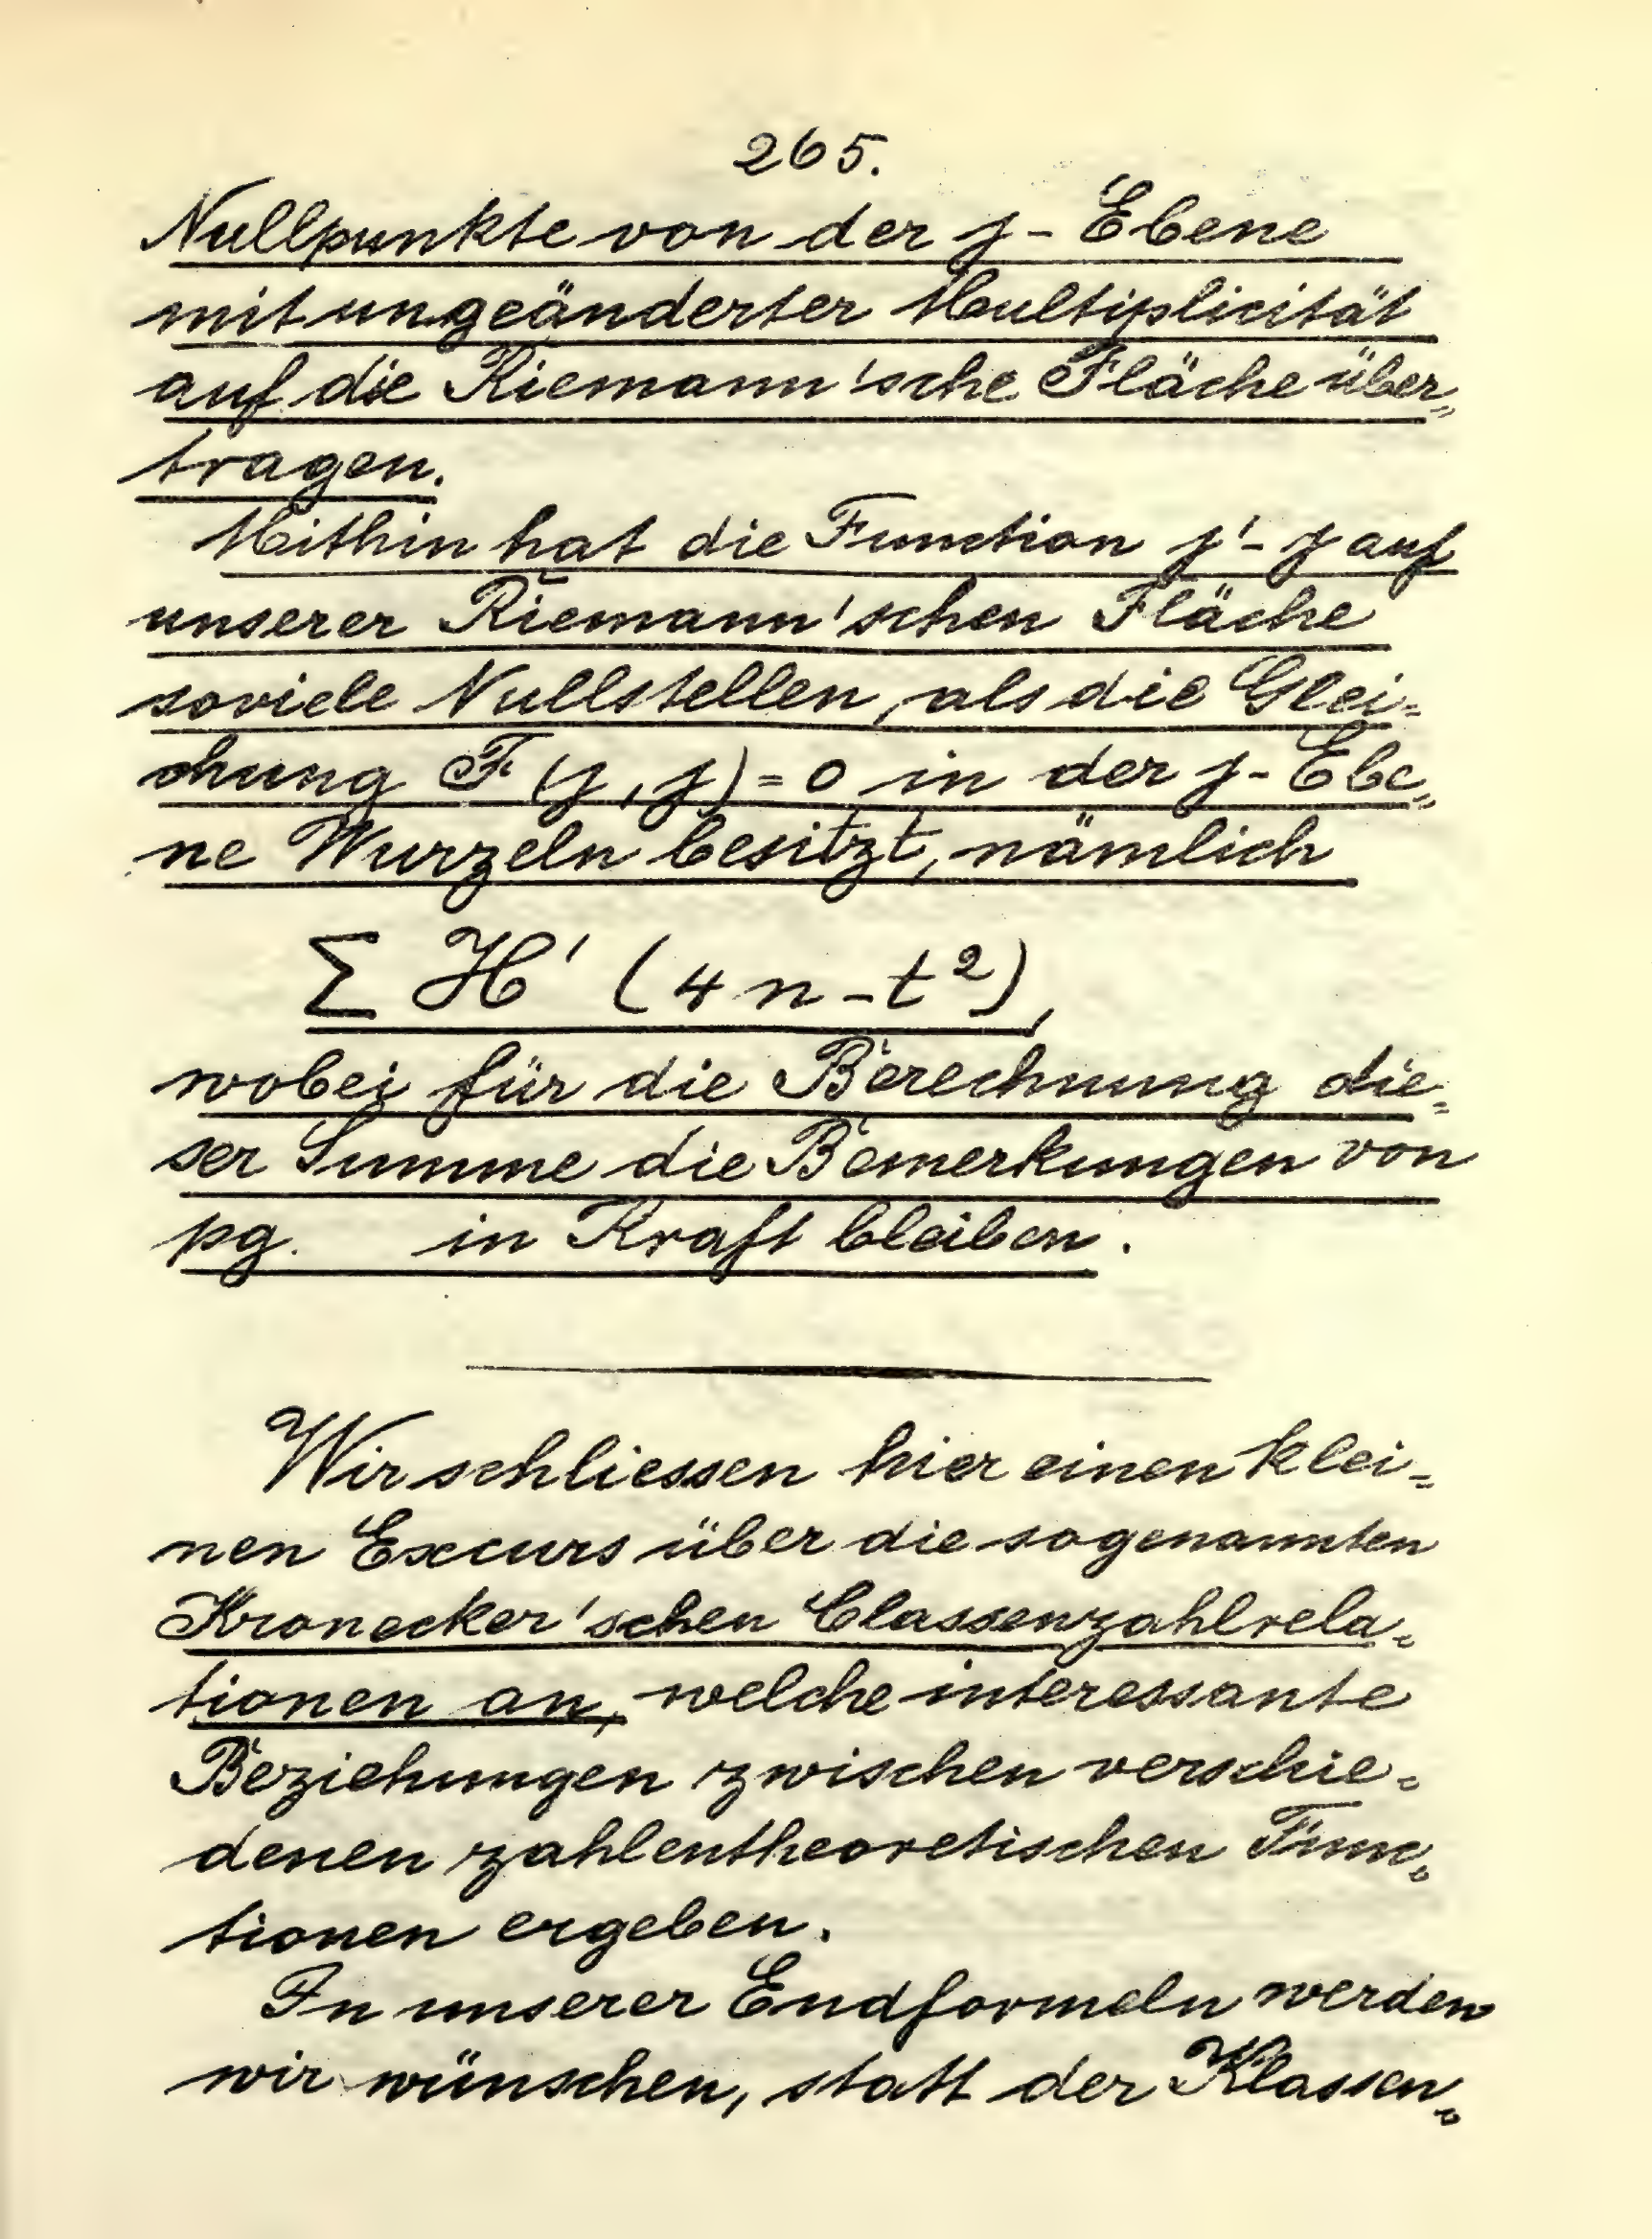 265.
Nullpunkte von der j-Ebene
mit ungeänderter Multiplicität
auf die Riemann'sche Fläche über=
tragen.
Mithin hat die Function j'-j auf
unserer Riemann'schen Fläche
soviele Nullstellen, als die Glei=
chung F(j,j)=0 in der j-Ebe=
ne Wurzeln besitzt, nämlich
Σ H'(4n-t²),
wobei für die Berechnung die=
ser Summe die Bemerkungen von
pg. in Kraft bleiben.
Wir schliessen hier einen klei=
nen Excurs über die sogenannten
Kronecker'schen Classenzahlrela=
tionen an, welche interessante
Beziehungen zwischen verschie=
denen zahlentheoretischen Func=
tionen ergeben.
In unserer Endformeln werden
wir wünschen, statt der Klassen=